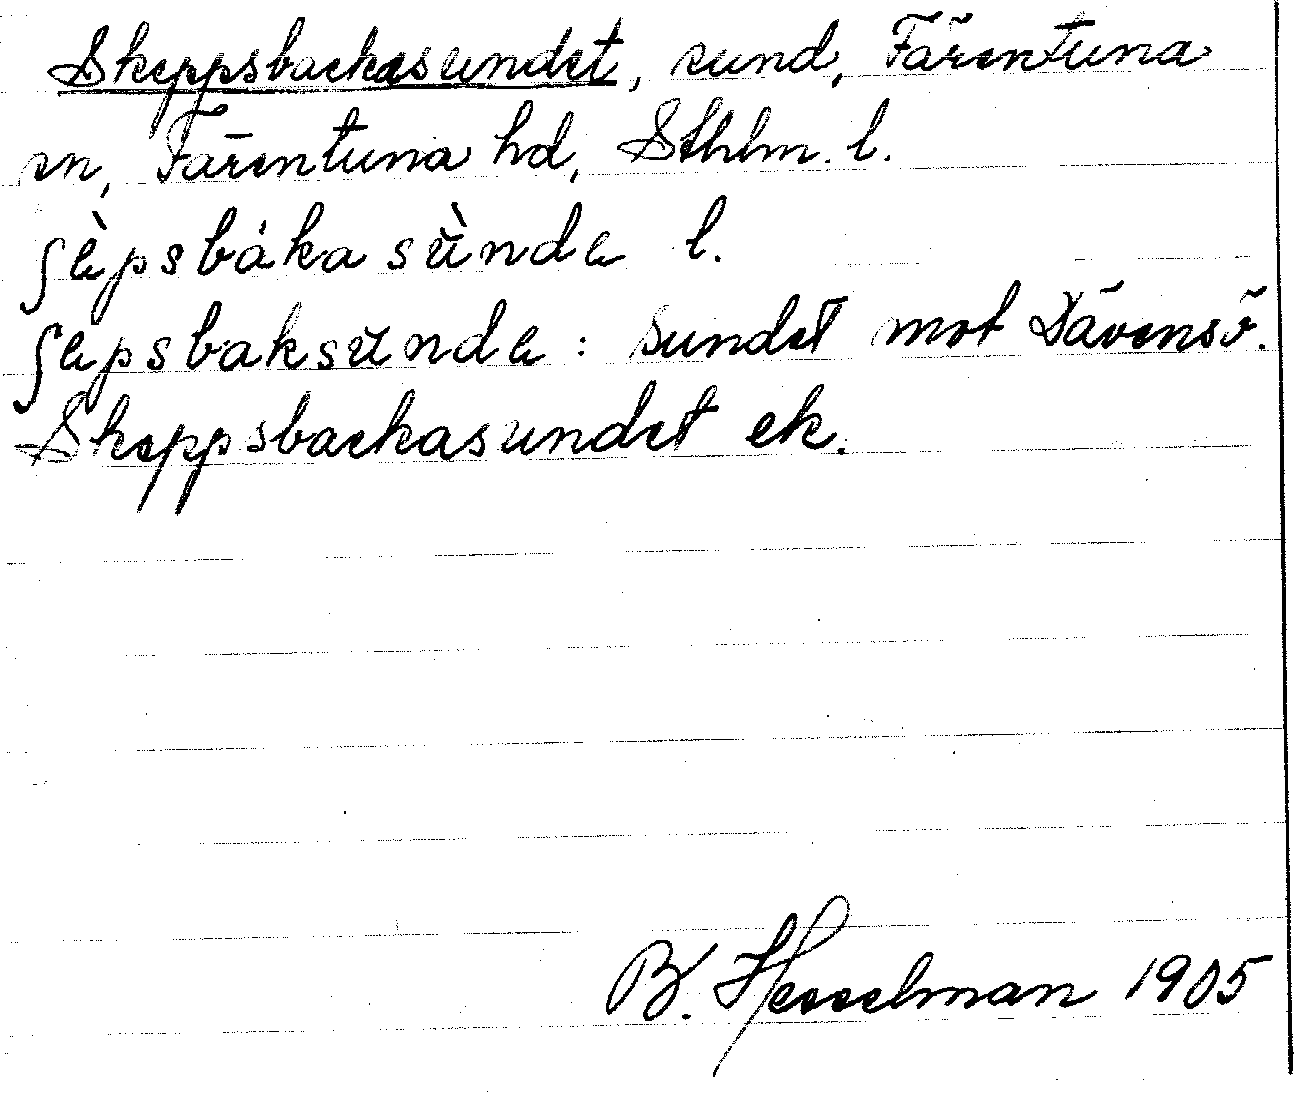 Skeppsbackasundet, sund, Färentuna
sn, Färentuna hd, Sthlm. l.
ʃèpsbákasùnde l.
ʃepsbaksunde: sundet mot Dävensö.
Skeppsbackasundet ek.
B. Hesselman 1905